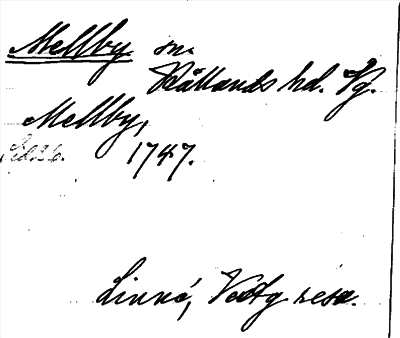 Mellby sn.
Kållands hd. Vg.
Mellby,
1747.
Linné, Vestg resa.